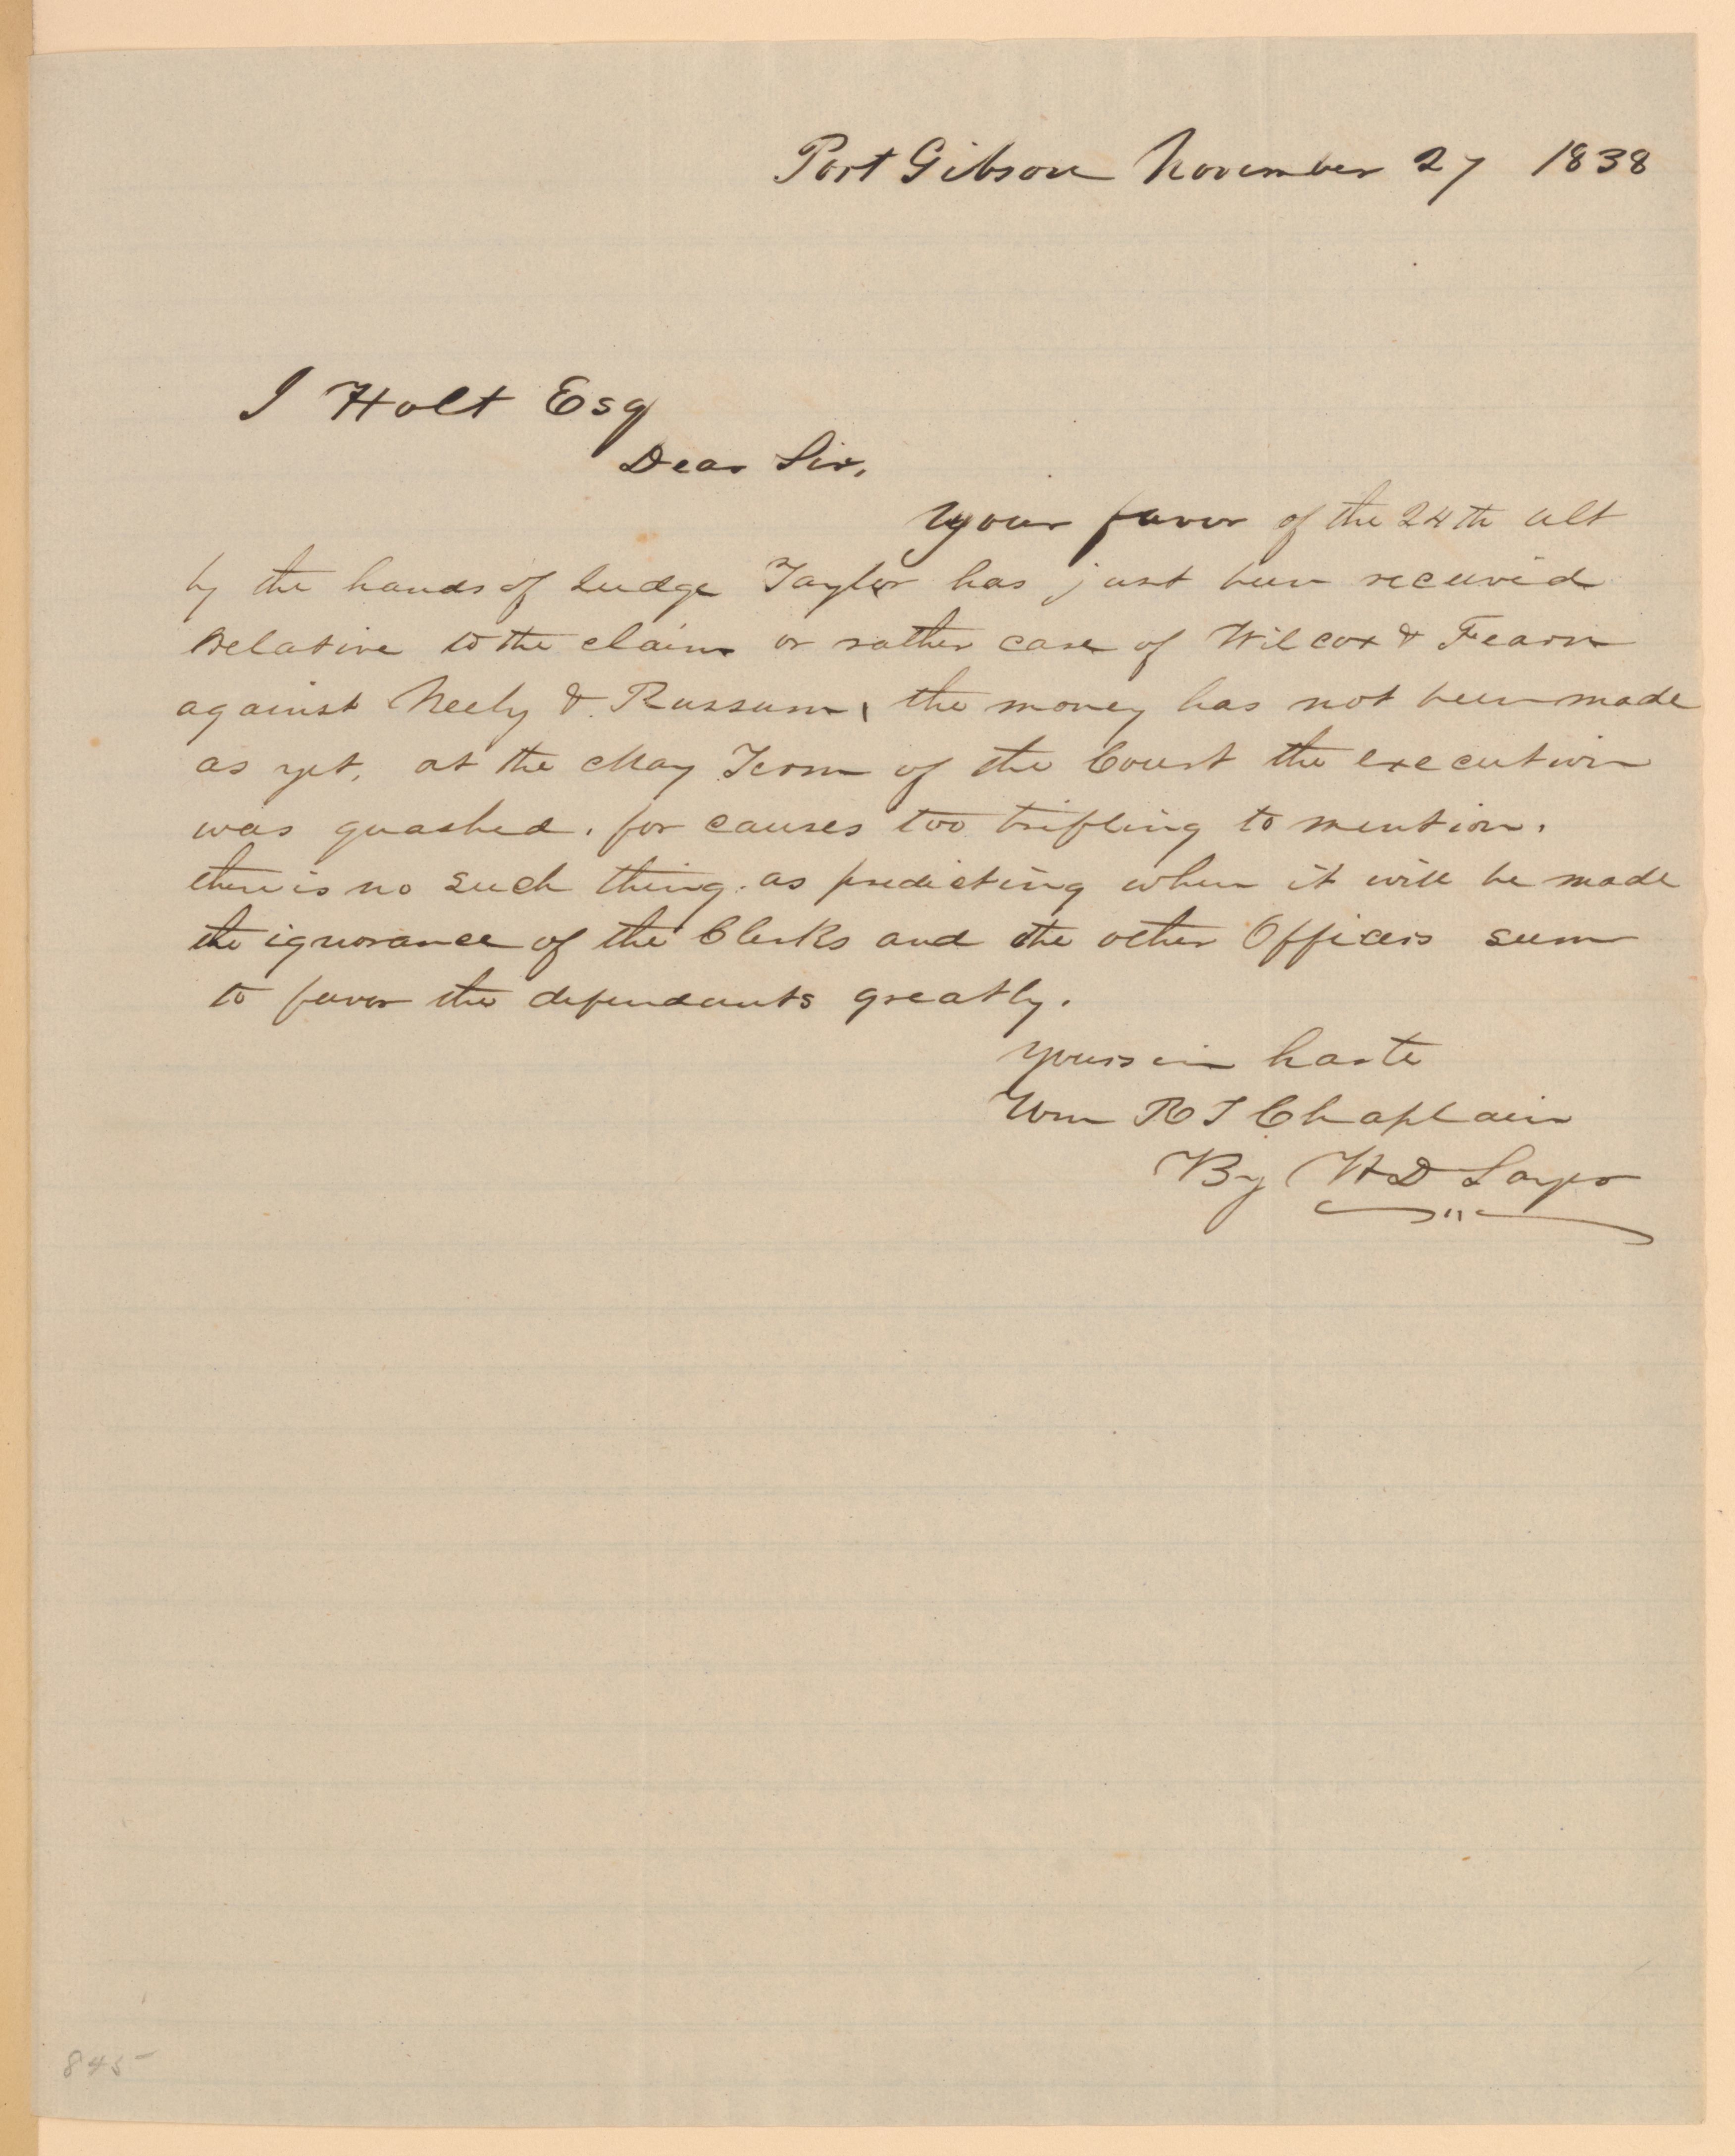 Port Gibson November 27 1838
J Holt Esq
Dear Sir,
Your favor of the 24th ult
by the hands of Judge Taylor has just been received
Relative to the claim or rather case of Wilcox & Fearn
against Neely & Russum, the money has not been made
as yet, at the May Term of the Court the execution
was quashed. for causes too trifling to mention.
there is no such thing as predicting when it will be made
the ignorance of the Clerks and the other Officers seem
to favor the defendants greatly.
yours in haste
Wm R T Chaplain
By H D
845